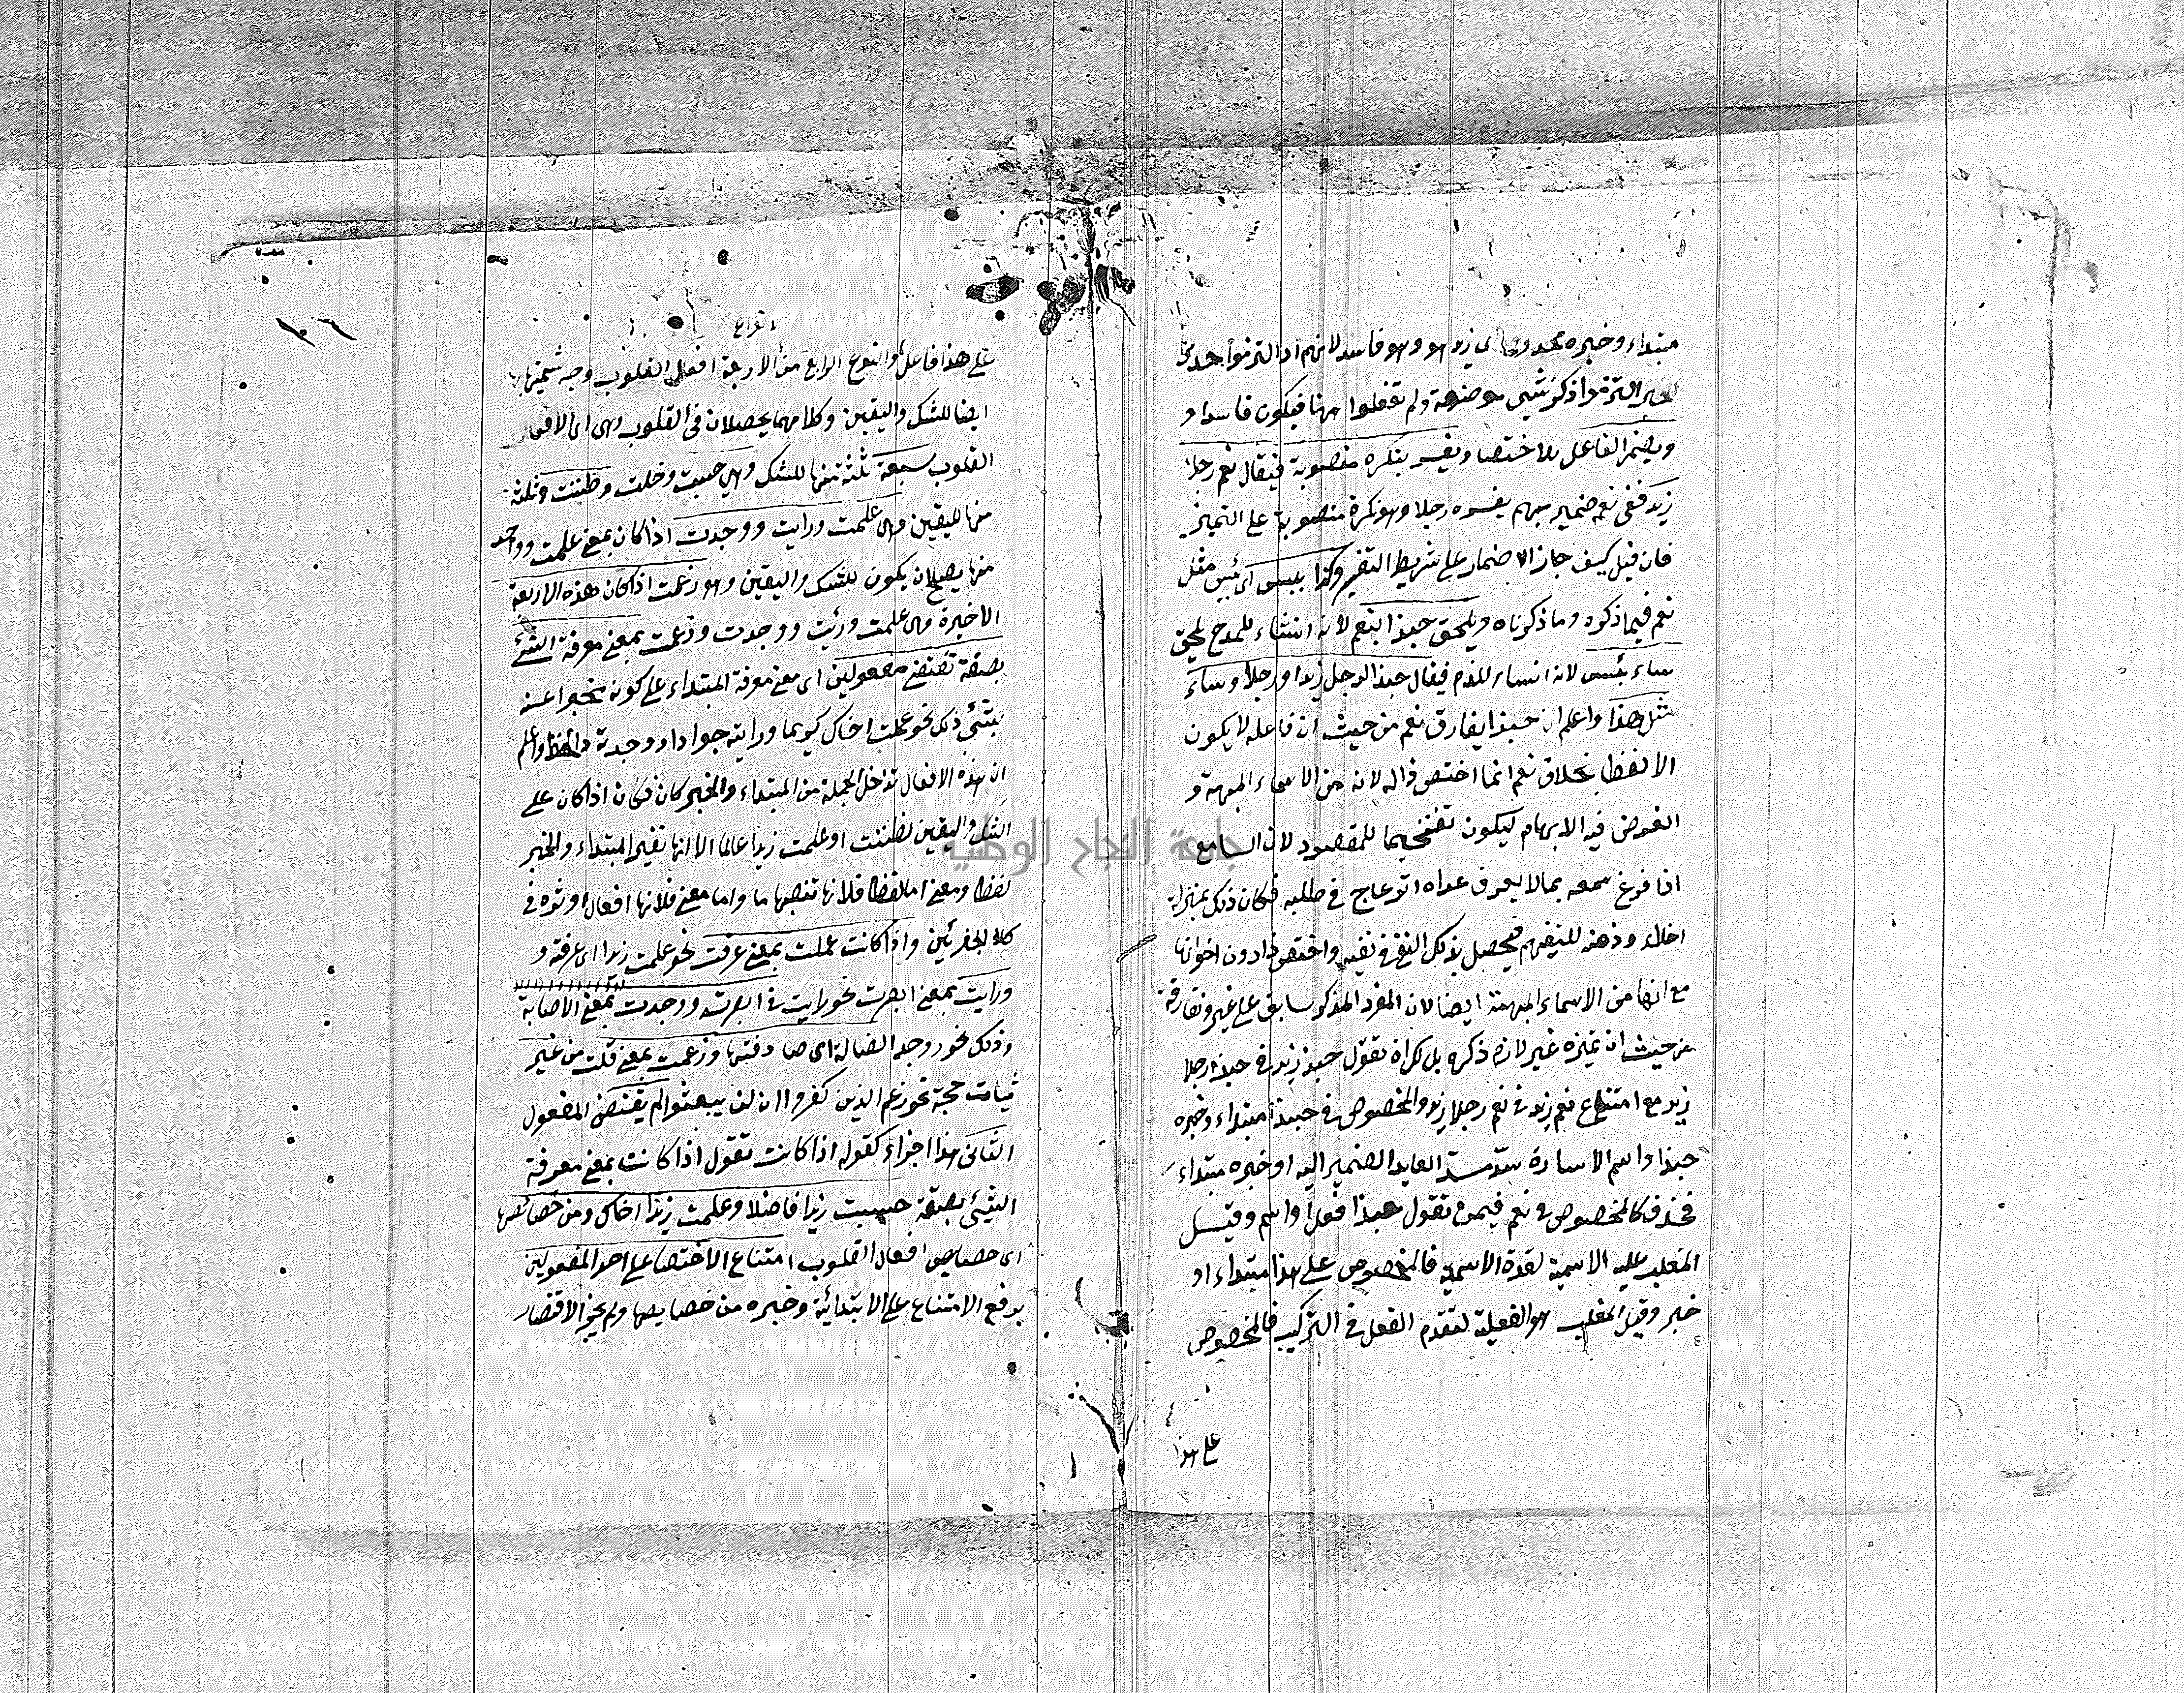 مبتداء وخبره محذوف اى زيد هو وهو فاسد لانهم اذ التزموا حذف
الخبر التزموا ذكر شىء موضعه ولم تفعلوا ههنا فيكون فاسدا و
ويضمر الفاعل للاختصا ويفسر بنكره منصوبة فيقال نعم رجلا
زيد ففى نعم ضمير مبهم يفسره رجلا وهو نكرة منصوبة على التميز
فان قيل كيف جاز الاضمار على شريط التفسير وكذا ببئس اى بئس مثل
نعم فيما ذكره وما ذكرناه ويلحق حبذا بنعم لانه انشاء للمدح يلحق
ساء ببئس لانه انساء للذم فيقال حبذا الرجل زيدا ورجلا وساء
مثل هذا واعلم ان حبذا يفارق نعم من حيث ان فاعله لا يكون
الا لفظا بخلاف نعم انما اختص ذاله لانه من الاسماء المبهمة و
الغرض فيه الابهام ليكون تفخيما للمقصود لان السامع
اذا فرغ سمعه بمالا يعرف عداه انوعاج فى طلبه فكان ذلك بمنزلة
اخلاء وذهنه للتفهم فيحصل بذلك النفخ فى نفسه واختص ذا دون اخواتها
مع انها من الاسماء المبهمة ايضا لان المفرد المذكر سابق على غيره وتفارقه
من حيث ان تميزه غير لازم ذكره بل لك ان تقول حبذ زيد فى حبذا رجلا
زيد مع امتناع نعم زيد فى نعم رجلا زيد والمخصوص فى حبذا مبتداء وخبره
حبذا واسم الاسارة سدّ مسدّ العايد الضمير اليه او خبره مبتداء
فحذف كالمخصوص فى نعم فيمن تقول حبذا فعل واسم وقيل
المغلب عليه الاسمية لقوة الاسمية فالمخصوص على هذا مبتداء او
خبر وقيل المغلب هو الفعلية لتقدم الفعل فى التركيب فالمخصوص
على هذا
انواع
على هذا فاعل والنوع الرابع من الاربعة افعال القلوب وجه تسميتها بها
ايضا للشك واليقين وكلاهما يحصلان فى القلوب وهى اى الافعال
القلوب سبعة ثلثة منها للشك وهى حسبت وخلت وظننت وثلثة
منها لليقين وهى علمت ورايت ووجدت اذا كان بمعنى علمت وواحد
منها يصلح لان يكون للشك واليقين وهو زعمت اذا كان هذه الاربعة
الاخيرة وهى علمت ورئيت ووجدت وزعمت بمعنى معرفة الشئ
بصفة تقتضى مفعولين اى معنى معرفة المبتداء على كونه مخبرا عنه
بشئ ذلك نحو علمت اخاك كريما ورايته جوادا ووجدته واعلم
ان هذه الافعال تدخل الجملة من المبتداء والخبر كان فكان اذا كان على
الشك واليقين لظننت او علمت زيدا عالما الا انها تغير المبتداء والخبر
لفظا ومعنى اما لفظا فلانها تنصبهاما واما معنى فلانها افعال موثره فى
كلا الجزئين واذا كانت علمت بمعنى عرفت نحو علمت زيدا اى عرفته و
ورايت بمعنى ابصرت نحو رايت فى ابصرته ووجدت بمعنى الاصابة
وذلك نحو روجد الضالة اى صادفتها وزعمت بمعنى قلت من غير
ثبات حجة نحو زعم الذين كفروا ان لن يبعثوا لم يقتض المفعول
الثانى هذا اجزاء كقوله اذا كانت تقول اذا كانت بمعنى معرفة
الشئ بصفة حسبت زيدا فاضلا وعلمت زيدا اخاك ومن خصائصها
اى خصايص افعال القلوب امتناع الاختصا على احد المفعولين
برفع الامتناع على الابتدائية وخبره من خصايصها ولم يجز الاقتصار
جامعة النجاح الوطنية